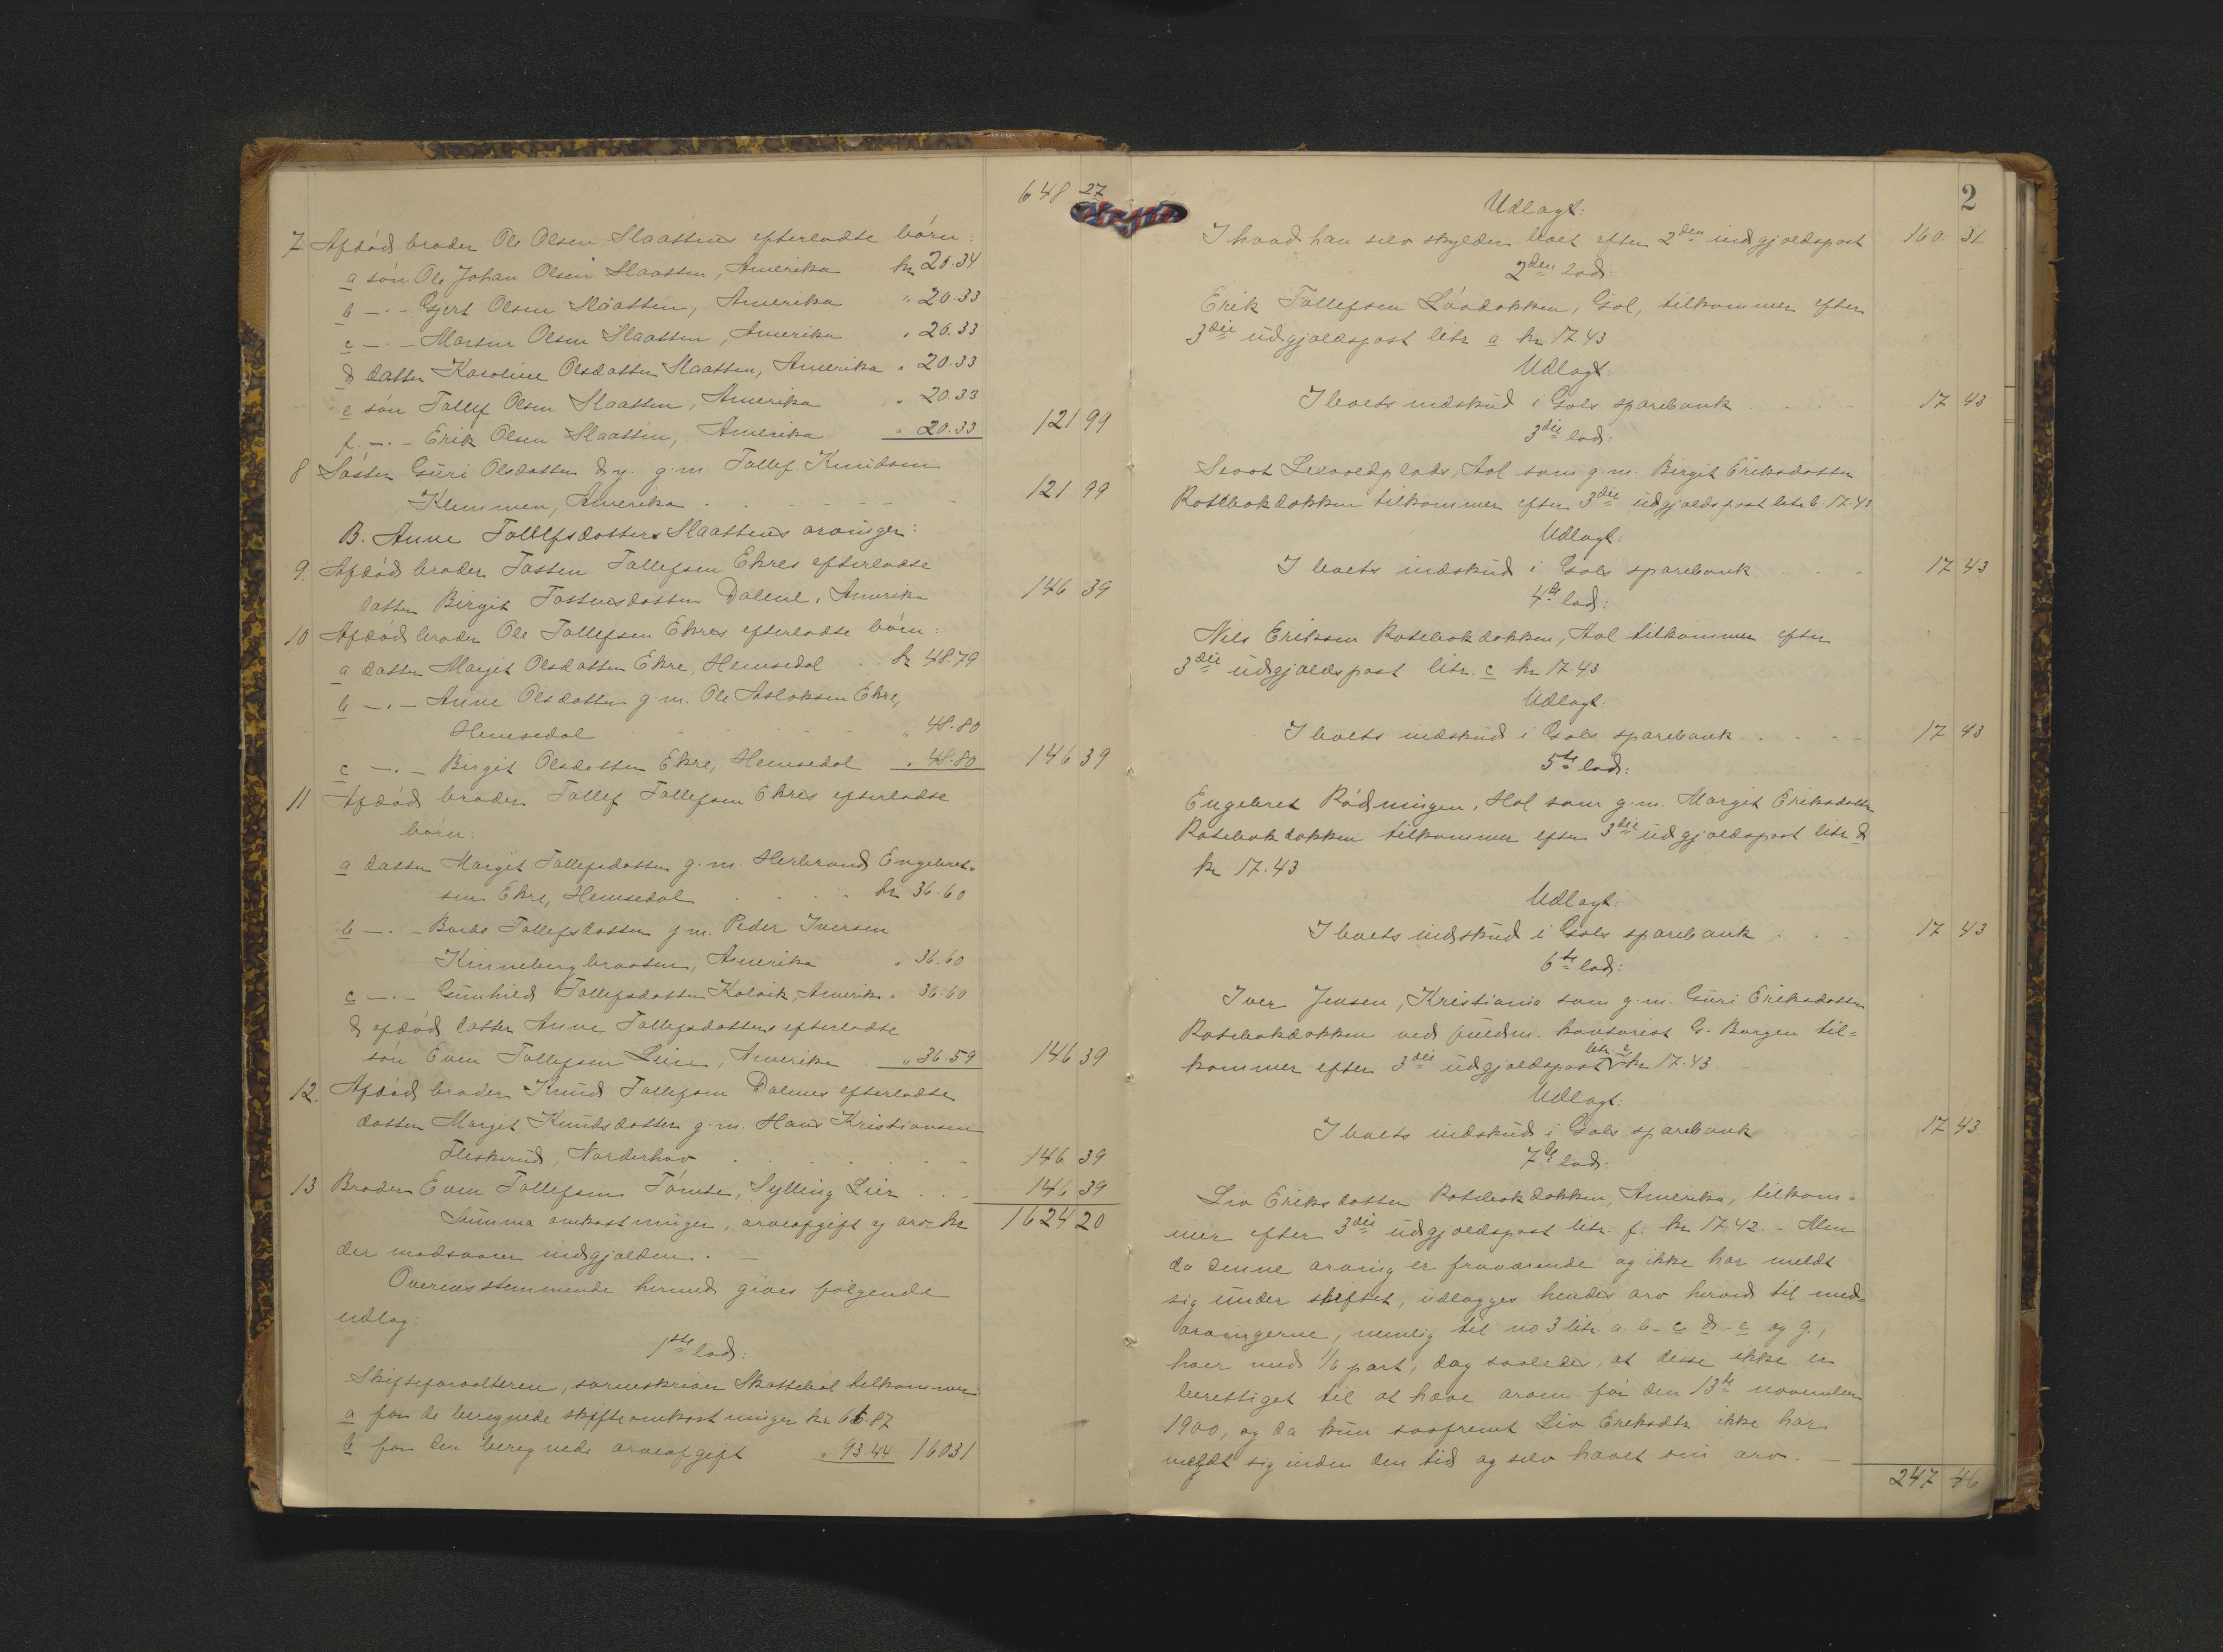 648 27
7. Afdød broder Ole Olsen Slaattens efterladte børn:
a søn Ole Johan Olsen Slaatten, Amerika kr 20.34
b –.– Gjert Olsen Slaatten, Amerika " 20.33
c –.– Martin Olsen Slaatten, Amerika " 20.33
d datter Karoline Olsdatter Slaatten, Amerika " 20.33
e søn Tollef Olsen Slaatten, Amerika " 20.33
f. –.– Erik Olsen Slaatten, Amerika " 20.33 121 99
8 Søster Guri Olsdatter d.y. g.m. Tollef Knudsen
Klemmen, Amerika 121 99
B. Anne Tollefsdatters Slaattens arvinger:
9. Afdød broder Tosten Tollefsen Ekres efterladte
datter Birgit Tostensdatter Dalene, Amerika 146 39
10 Afdød broder Ole Tollefsen Ekres efterladte børn:
a datter Margit Olsdatter Ekre, Hemsedal kr 48.79
b –.– Anne Olsdatter g.m. Ole Asloksen Ekre,
Hemsedal " 48.80
c –.– Birgit Olsdatter Ekre, Hemsedal " 48.80 146 39
11 Afdød broder Tollef Tollefsen Ekres efterladte
børn:
a datter Margit Tollefsdatter g.m. Herbrand Engebret-
sen Ekre, Hemsedal kr 36.60
b –.– Barbo Tollefsdatter g.m. Peder Iversen
Kinnebergbraaten, Amerika " 36.60
c –.– Gunhild Tollefsdatter Kolvik, Amerika " 36.60
d afdød datter Anne Tollefsdatters efterladte
søn Even Tollefsen Lien, Amerika " 36.59 146 39
12. Afdød broder Knud Tollefsen Dalenes efterladte
datter Margit Knudsdatter g.m. Hans Kristiansen
Fleskerud, Norderhov 146 39
13 Broder Even Tollefsen Tømte, Sylling Lier 146 39
Summa omkostninger, arveafgift og arv kr 1624 20
der modsvarer indgjælden. –
Overensstemmende hermed gives følgende
udlag:
1ste lod:
Skifteforvalteren, sorenskriver Skattebøl tilkommer:
a for de beregnede skifteomkostninger kr 66.87
b for den beregnede arveafgift " 93.44 160 31
2
Udlagt:
I hvad han selv skylder boet efter 2den indgjældspost 160. 31
2den lod:
Erik Tollefsen Løvdokken, Gol, tilkommer efter
3die udgjældspost litr a kr 17.43
Udlagt.
I boets indskud i Gols sparebank 17 43
3die lod:
Levovldplads, Aal som g.m. Birgit Eriksdatter
Rotebokdokken tilkommer efter 3die udgjældspost litr b. 17.43
Udlagt:
I boets indskud i Gols sparebank 17 43
4de lod:
Nils Eriksen Rotebokdokken, Aal tilkommer efter
3die udgjældspost litr. c kr 17.43
Udlagt:
I boets indskud i Gols sparebank 17 43
5te lod:
Engebret Rødningen, Hol som g.m. Margit Eriksdatter
Rotebokdokken tilkommer efter 3die udgjældspost litr d
kr 17.43
Udlagt:
I boets indskud i Gols sparebank 17 43
6te lod:
Iver Jensen, Kristiania som g.m. Guri Eriksdatter
Rotebokdokken ved fuldm. kontorist G. Borgen til=
kommer efter 3die udgjældspost litr. e kr 17.43
Udlagt:
I boets indskud i Gols sparebank 17 43
7de lod:
Liv Eriksdatter Rotebokdokken, Amerika, tilkom=
mer efter 3die udgjældspost litr. f. kr 17.42 – Men
da denne arving er fraværende og ikke har meldt
sig under skiftet, udlægges hendes arv herved til med-
arvingerne, nemlig til no 3 litr. a. b – c d – e og g.,
hver med 1/6 part, dog saaledes, at disse ikke er
berettiget til at hæve arven før den 13de november
1900, og da kun saafremt Liv Eriksdtr. ikke har
meldt sig inden den tid og selv hævet sin arv. –
247 46